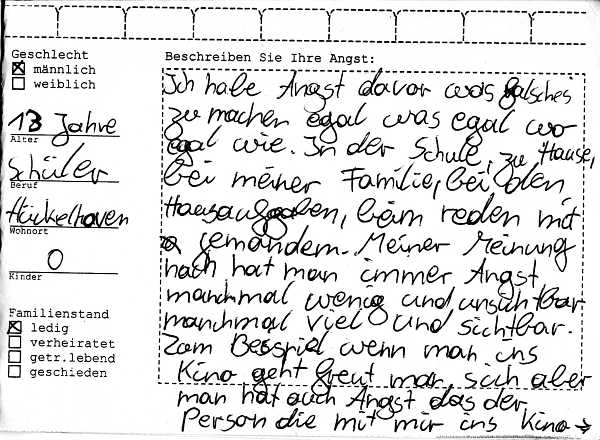 Geschlecht
männlich
weiblich
13 Jahre
Alter
Schüler
Beruf
Hückelhoven
Wohnort
0
Kinder
Familienstand
ledig
verheiratet
getr.lebend
geschieden
Beschreiben Sie Ihre Angst:
Ich habe Angst davor was falsches
zu machen egal was egal wo
egal wie. In der Schule, zu Hause,
bei meiner Familie, bei den
Hausaufgaben, beim reden mit
jemandem. Meiner Meinung
nach hat man immer Angst
manchmal wenig und unsichtbar
manchmal viel und sichtbar.
Zum Beispiel wenn man ins
Kino geht freut man sich aber
man hat auch Angst das der
Person die mit mir ins Kino →